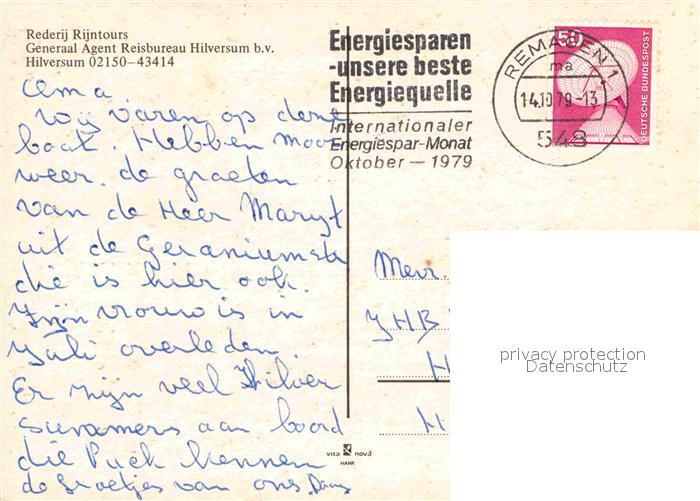 Rederij Rijntours
Generaal Agent Reisbureau Hilversum b.v.
Hilversum 02150–43414
Energiesparen
-unsere beste
Energiequelle
Internationaler
Energiespar-Monat
Oktober — 1979
REMAGEN 1
ma
14.10.79-13
548
50
DEUTSCHE BUNDESPOST
Oma
Wij varen op deze
boot. Hebben mooi
weer. de groeten
van de Heer
uit de Geraniumstr
die is hier ook.
Zijn vrouw is in
Juli overleden.
Er zijn veel Hilver
sumamers aan boord
die Puck kennen
de Groetjes van ons.
Mevr.
JHB
H
H
privacy protection
Datenschutz
vita nova
HANK